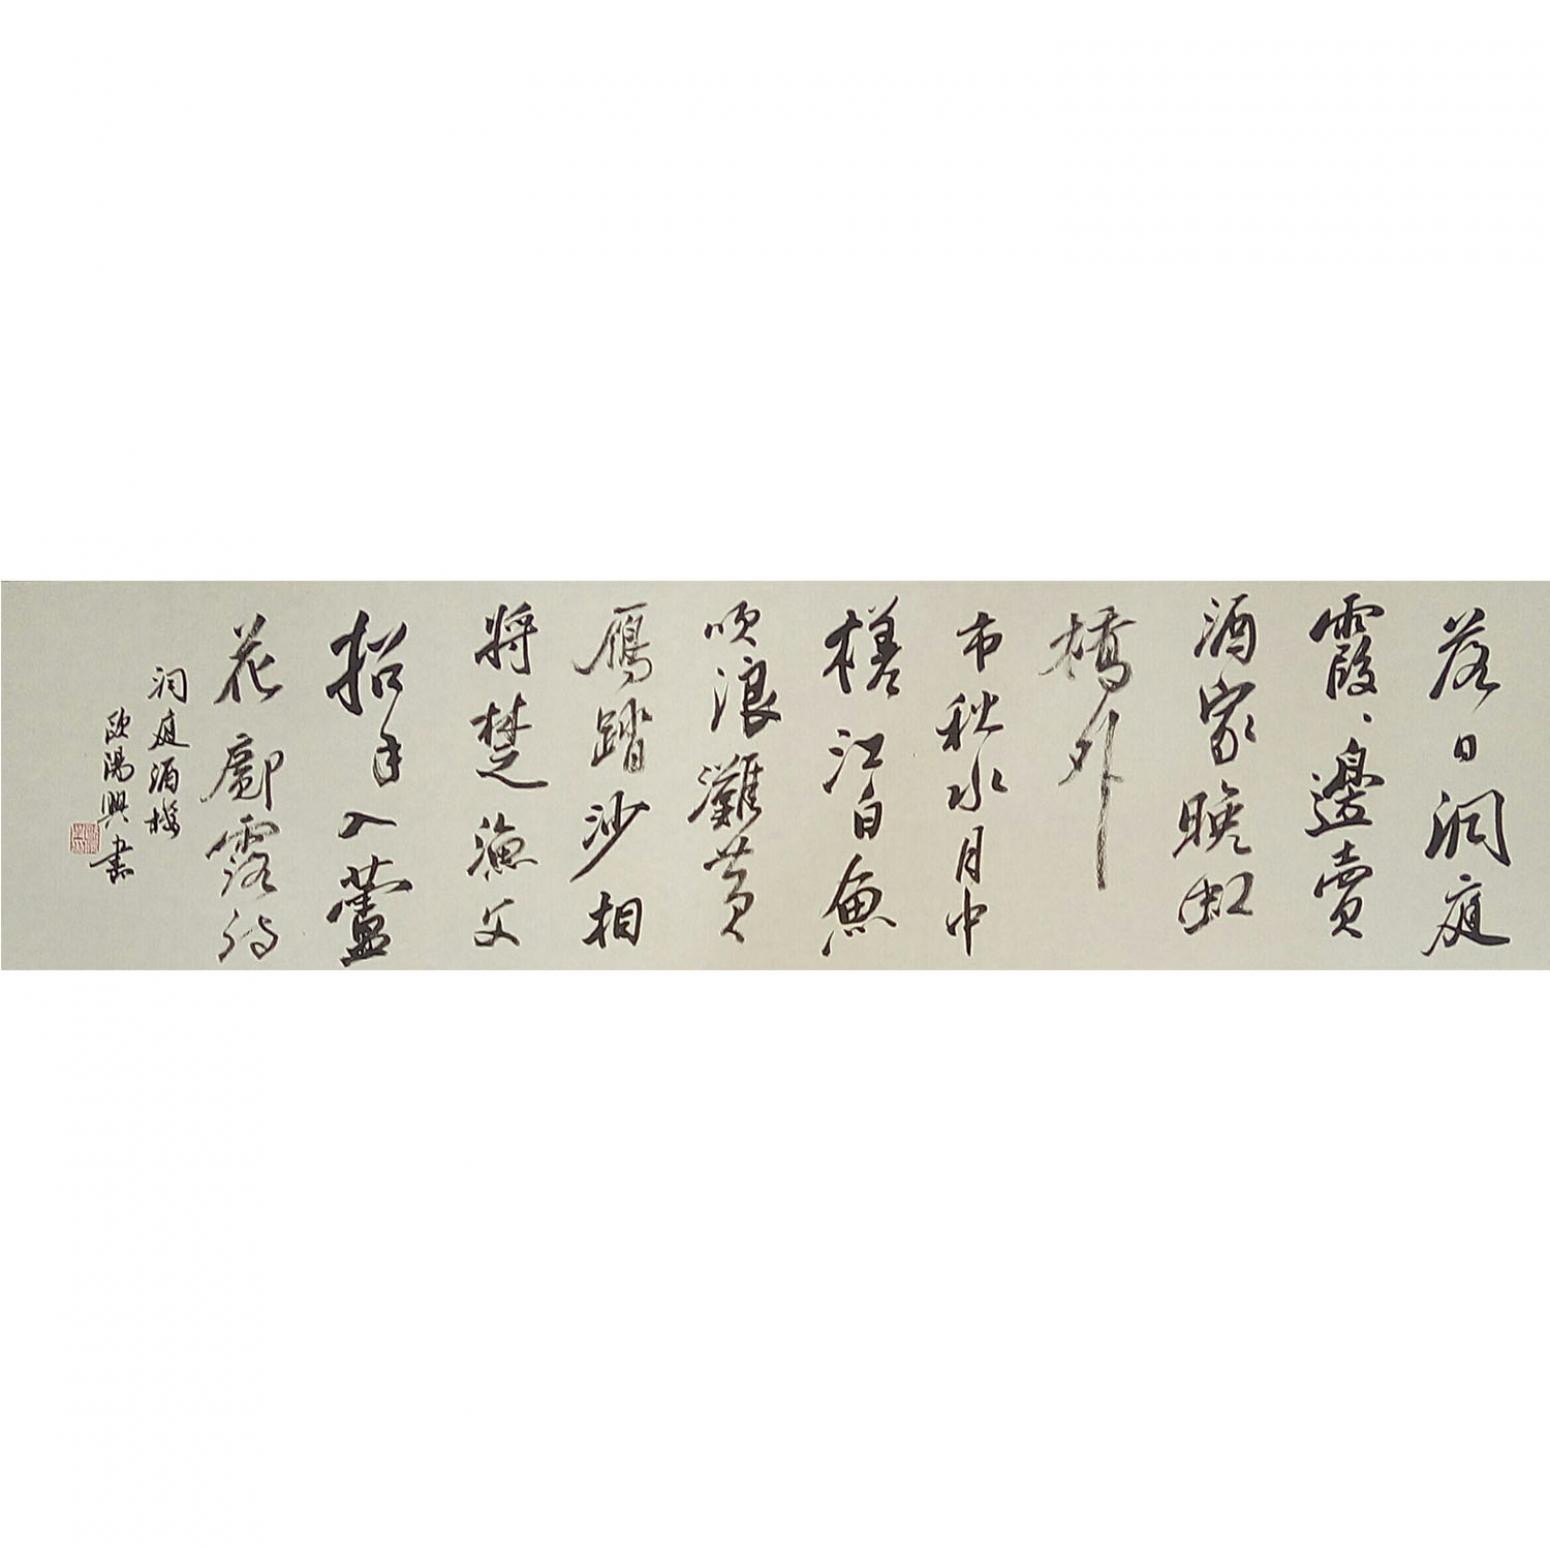 落日洞庭
霞、邊賣
酒家晚虹
橋外
市秋水月中
槎江白魚
吹浪灘黃
鴈踏沙相
將楚漁父
招手入蘆
花鄺露詩
洞庭酒樓
歐陽興書